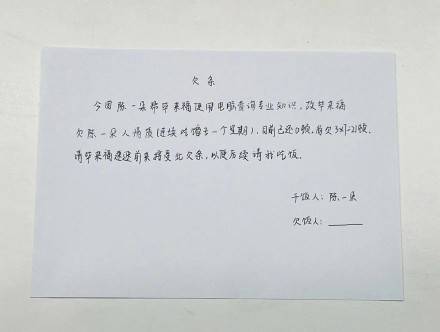 欠条
今因陈一朵帮毕来福使用电脑查询专业知识,故毕来福
欠陈一朵人情债(连续吃馆去一个星期),目前已还0顿,尚欠3x7=21顿,
请毕来福速速前来接受此欠条,以便后续请我吃饭。
干饭人:陈一朵
欠饭人: